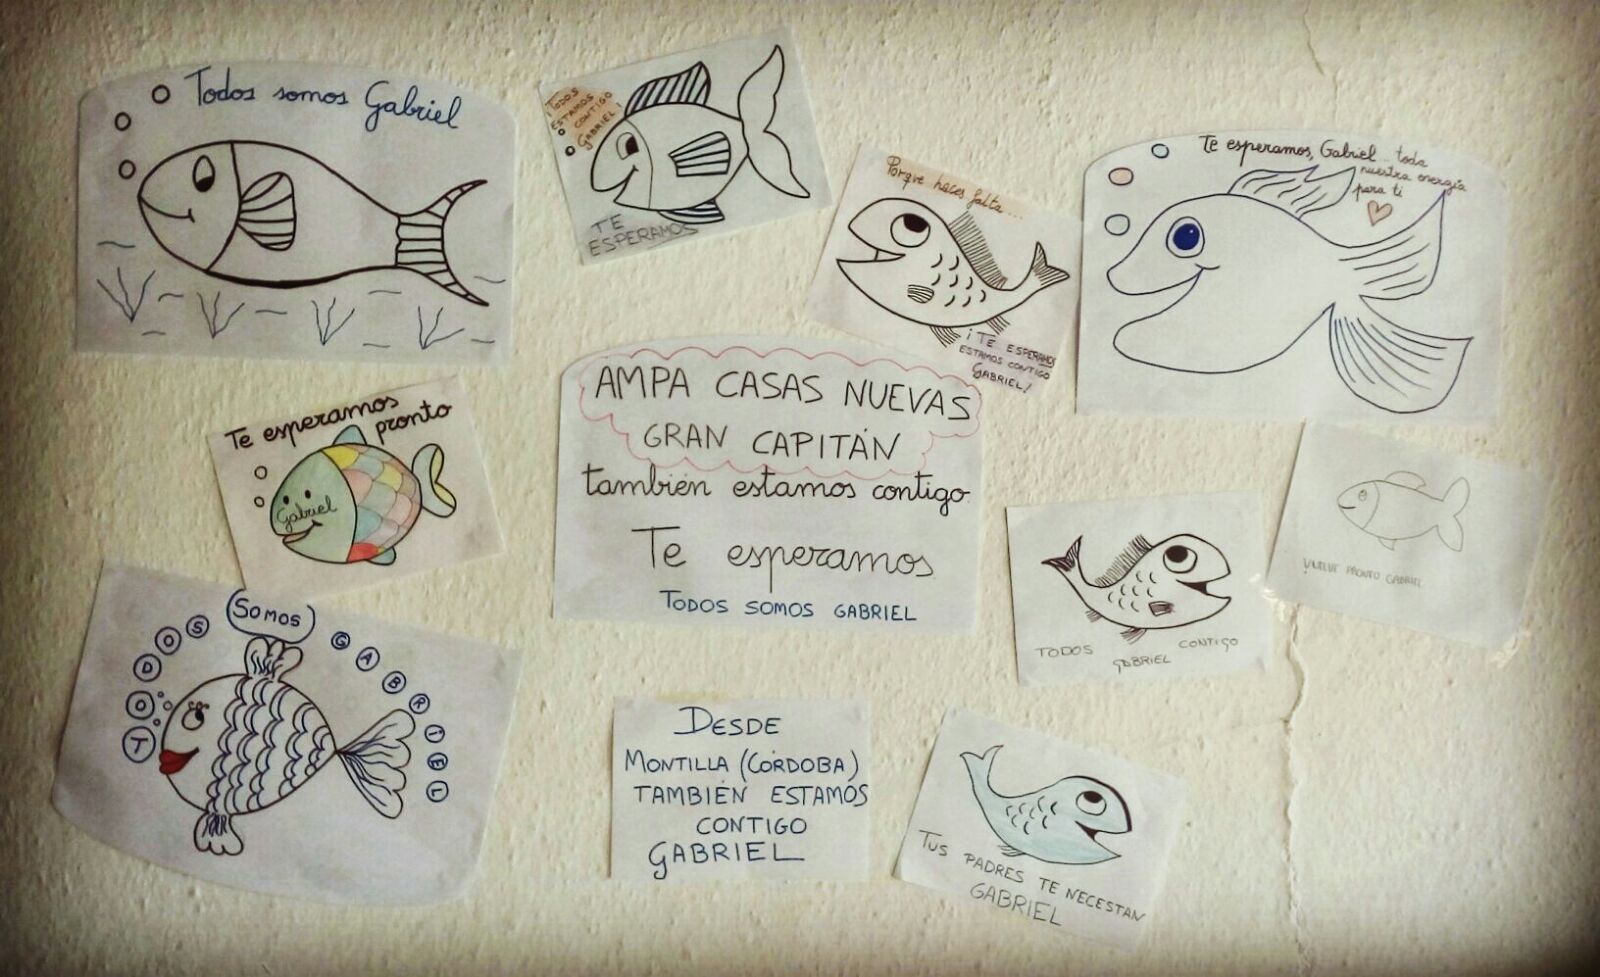 Todos somos Gabriel
¡TODOS
ESTAMOS
CONTIGO
GABRIEL!
TE
ESPERAMOS
Porque haces falta...
¡TE ESPERAMOS
ESTAMOS CONTIGO
GABRIEL!
Te esperamos, Gabriel... toda
nuestra energía
para ti
Te esperamos
pronto
Gabriel
AMPA CASAS NUEVAS
GRAN CAPITÁN
también estamos contigo
Te esperamos
TODOS SOMOS GABRIEL
TODOS CONTIGO
GABRIEL
VUELVE PRONTO GABRIEL
TODOS SOMOS GABRIEL
DESDE
MONTILLA (CÓRDOBA)
TAMBIÉN ESTAMOS
CONTIGO
GABRIEL
TUS PADRES TE NECESTAN
GABRIEL